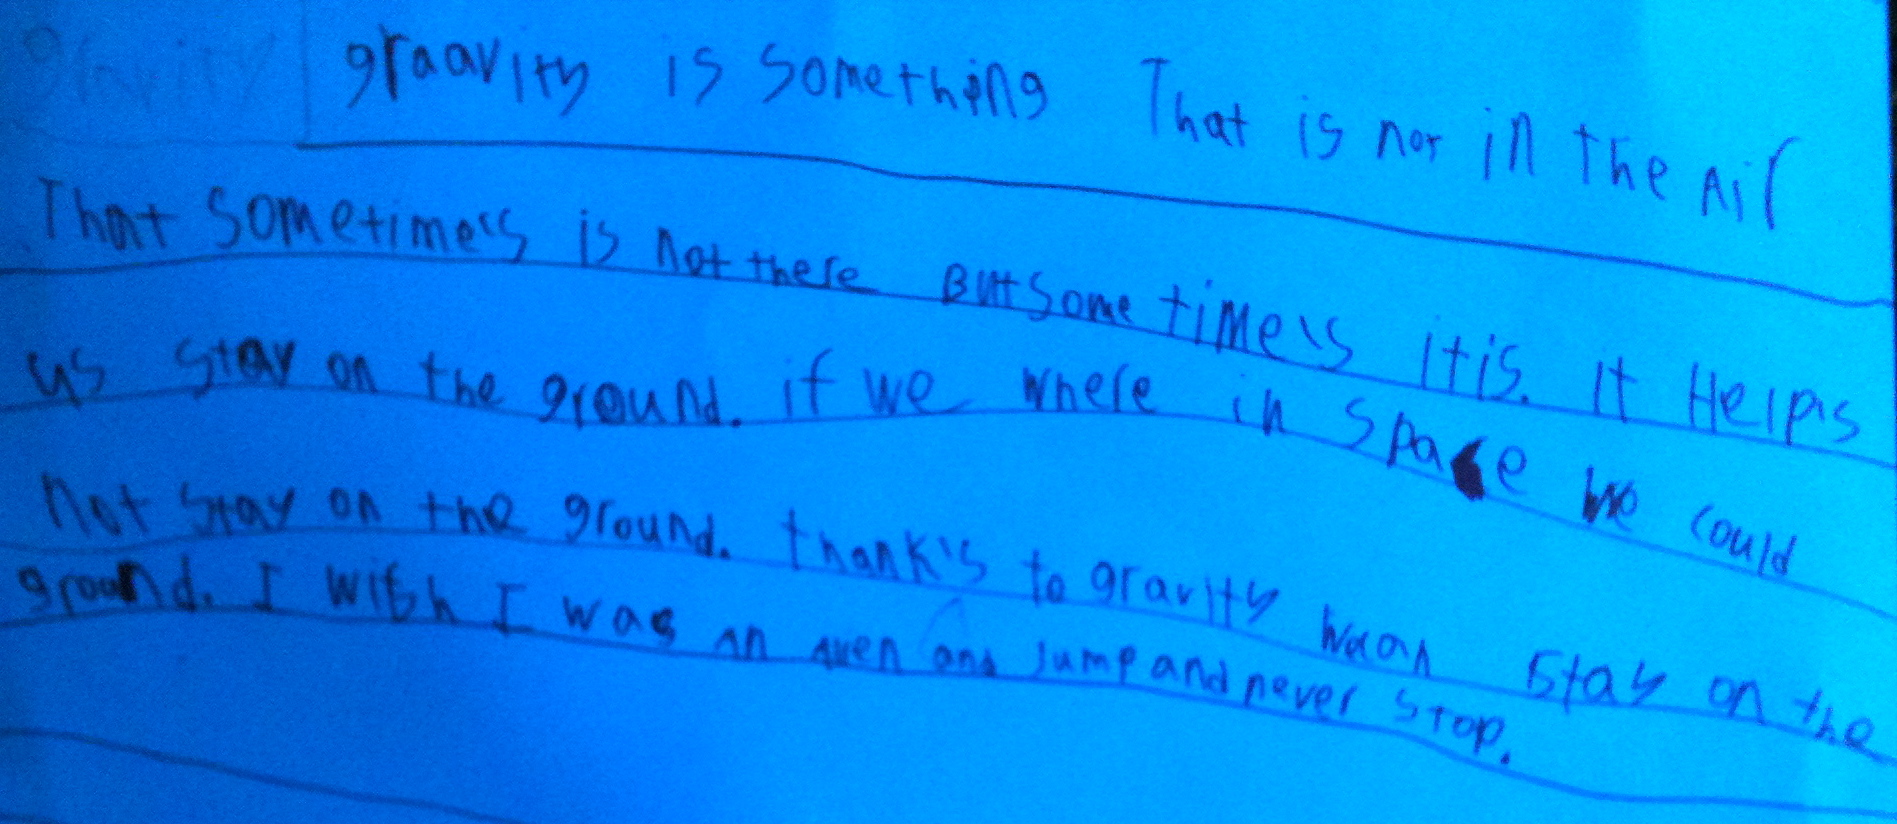 gravity graavity is something That is not in the Air
That sometime's is not there But some time's it is. It Helps
us stay on the ground. if we where in space we could
not stay on the ground. thank's to gravity stay on the
ground. I wish I was an and Jump and never stop.